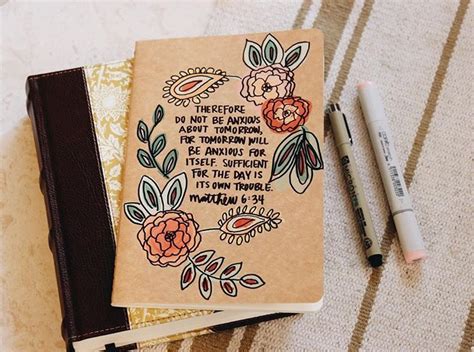 THEREFORE
DO NOT BE ANXIOUS
ABOUT TOMORROW,
FOR TOMORROW WILL
BE ANXIOUS FOR
ITSELF. SUFFICIENT
FOR THE DAY IS
ITS OWN TROUBLE.
matthew 6:34